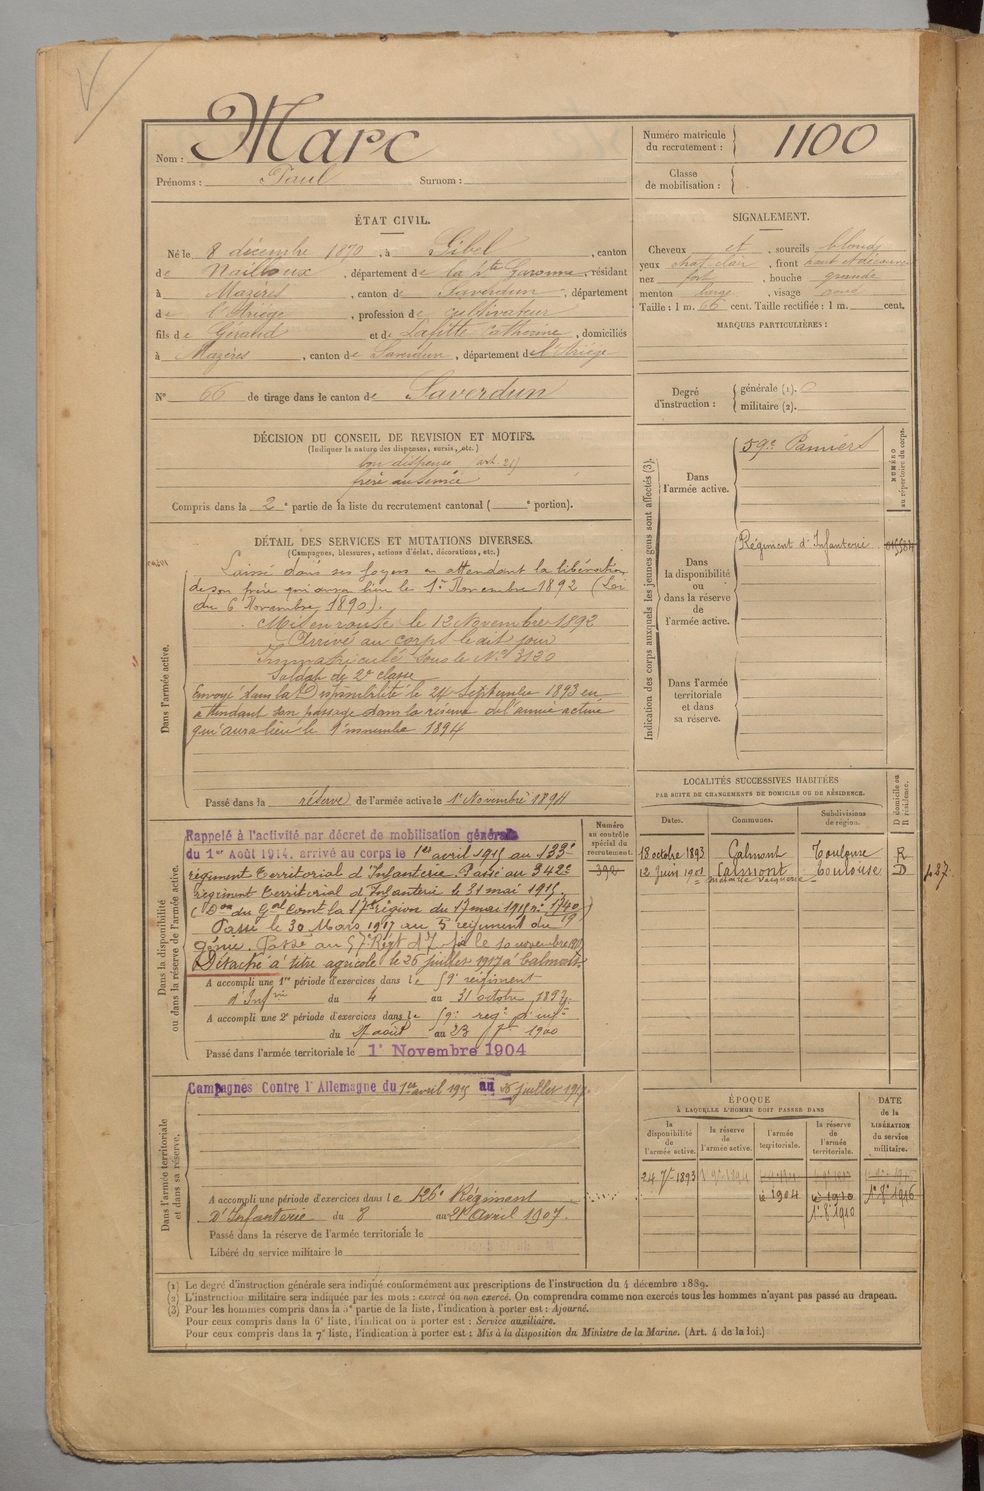 Nom : Marc
Prénoms : Paul Surnom :
Numéro matricule du recrutement : 1100
Classe de mobilisation :
ÉTAT CIVIL.
Né le 8 décembre 1870, à Gibel, canton
de Nailloux, département de la Hte Garonne, résidant
à Mazères, canton de Saverdun, département
de l'Ariége, profession de cultivateur
fils de Géraud et de Lafitte Catherine, domiciliés
à Mazères, canton de Saverdun, département de l'Ariége
N° 66 de tirage dans le canton de Saverdun
SIGNALEMENT.
Cheveux et, sourcils blonds
yeux chat. clair, front haut et découvert
nez fort, bouche grande
menton large, visage rond
Taille : 1 m. 66 cent. Taille rectifiée : 1 m. cent.
MARQUES PARTICULIÈRES :
Degré d'instruction : générale (1).
militaire (2).
DÉCISION DU CONSEIL DE REVISION ET MOTIFS.
(Indiquer la nature des dispenses, sursis, etc.)
bon dispensé (art. 21)
frère au service
Compris dans la 2e partie de la liste du recrutement cantonal ( e portion).
DÉTAIL DES SERVICES ET MUTATIONS DIVERSES.
(Campagnes, blessures, actions d'éclat, décorations, etc.)
Dans l'armée active.
Laissé dans ses foyers en attendant la libération
de son frère qui aura lieu le 1er Novembre 1892 (Loi
du 6 Novembre 1890).
Mis en route le 12 Novembre 1892
Arrivé au corps le dit jour
Immatriculé sous le N° 3130
Soldat de 2e classe
Envoyé dans la Disponibilité le 24 Septembre 1893 en
attendant son passage dans la réserve de l'armée active
qui aura lieu le 1er novembre 1894
Passé dans la réserve de l'armée active le 1er Novembre 1894
Indication des corps auxquels les jeunes gens sont affectés (3).
NUMÉRO au répertoire du corps.
Dans l'armée active.
59e Pamiers
Dans la disponibilité ou dans la réserve de l'armée active.
Régiment d'Infanterie
Dans l'armée territoriale et dans sa réserve.
LOCALITÉS SUCCESSIVES HABITÉES
PAR SUITE DE CHANGEMENTS DE DOMICILE OU DE RÉSIDENCE.
Dates. Communes. Subdivisions de région. D domicile ou R résidence.
18 octobre 1893 Calmont Toulouse R
12 juin 1901 Calmont Toulouse D
437
Dans la disponibilité ou dans la réserve de l'armée active.
Numéro au contrôle spécial du recrutement.
390
Rappelé à l'activité par décret de mobilisation générale
du 1er Août 1914, arrivé au corps le 1er avril 1915 au 133e
régiment Territorial d'Infanterie. Passé au 342e
régiment Territorial d'Infanterie le 31 mai 1915.
(Don du Gal Comt la 17e région du 17 mai 1915 n° 1740)
Passé le 30 Mars 1917 au 5 régiment du
Génie. Passé au 57 Régt d'Inf le 10 novembre 1917
Détaché à titre agricole le 26 juillet 1917 à Calmont
A accompli une 1re période d'exercices dans le 59e régiment
d'Infrie du 4 au 31 octobre 1897.
A accompli une 2e période d'exercices dans le 59e régt d'infie
du 27 août au 23 7bre 1900
Passé dans l'armée territoriale le 1er Novembre 1904
Dans l'armée territoriale et dans sa réserve.
Campagnes Contre l'Allemagne du 1er avril 1915 au 26 juillet 1917.
A accompli une période d'exercices dans le 126e Régiment
D'Infanterie du 8 au 21 Avril 1907.
Passé dans la réserve de l'armée territoriale le
Libéré du service militaire le
ÉPOQUE
À LAQUELLE L'HOMME DOIT PASSER DANS
DATE de la LIBÉRATION du service militaire.
la disponibilité de l'armée active. la réserve de l'armée active. l'armée territoriale. la réserve de l'armée territoriale.
24 7bre 1893
1904 1910 1er 8bre 1916
1er 8bre 1910
(1) Le degré d'instruction générale sera indiqué conformément aux prescriptions de l'instruction du 4 décembre 1889.
(2) L'instruction militaire sera indiquée par les mots : exercé ou non exercé. On comprendra comme non exercés tous les hommes n'ayant pas passé au drapeau.
(3) Pour les hommes compris dans la 5e partie de la liste, l'indication à porter est : Ajourné.
Pour ceux compris dans la 6e liste, l'indication à porter est : Service auxiliaire.
Pour ceux compris dans la 7e liste, l'indication à porter est : Mis à la disposition du Ministre de la Marine. (Art. 4 de la loi.)